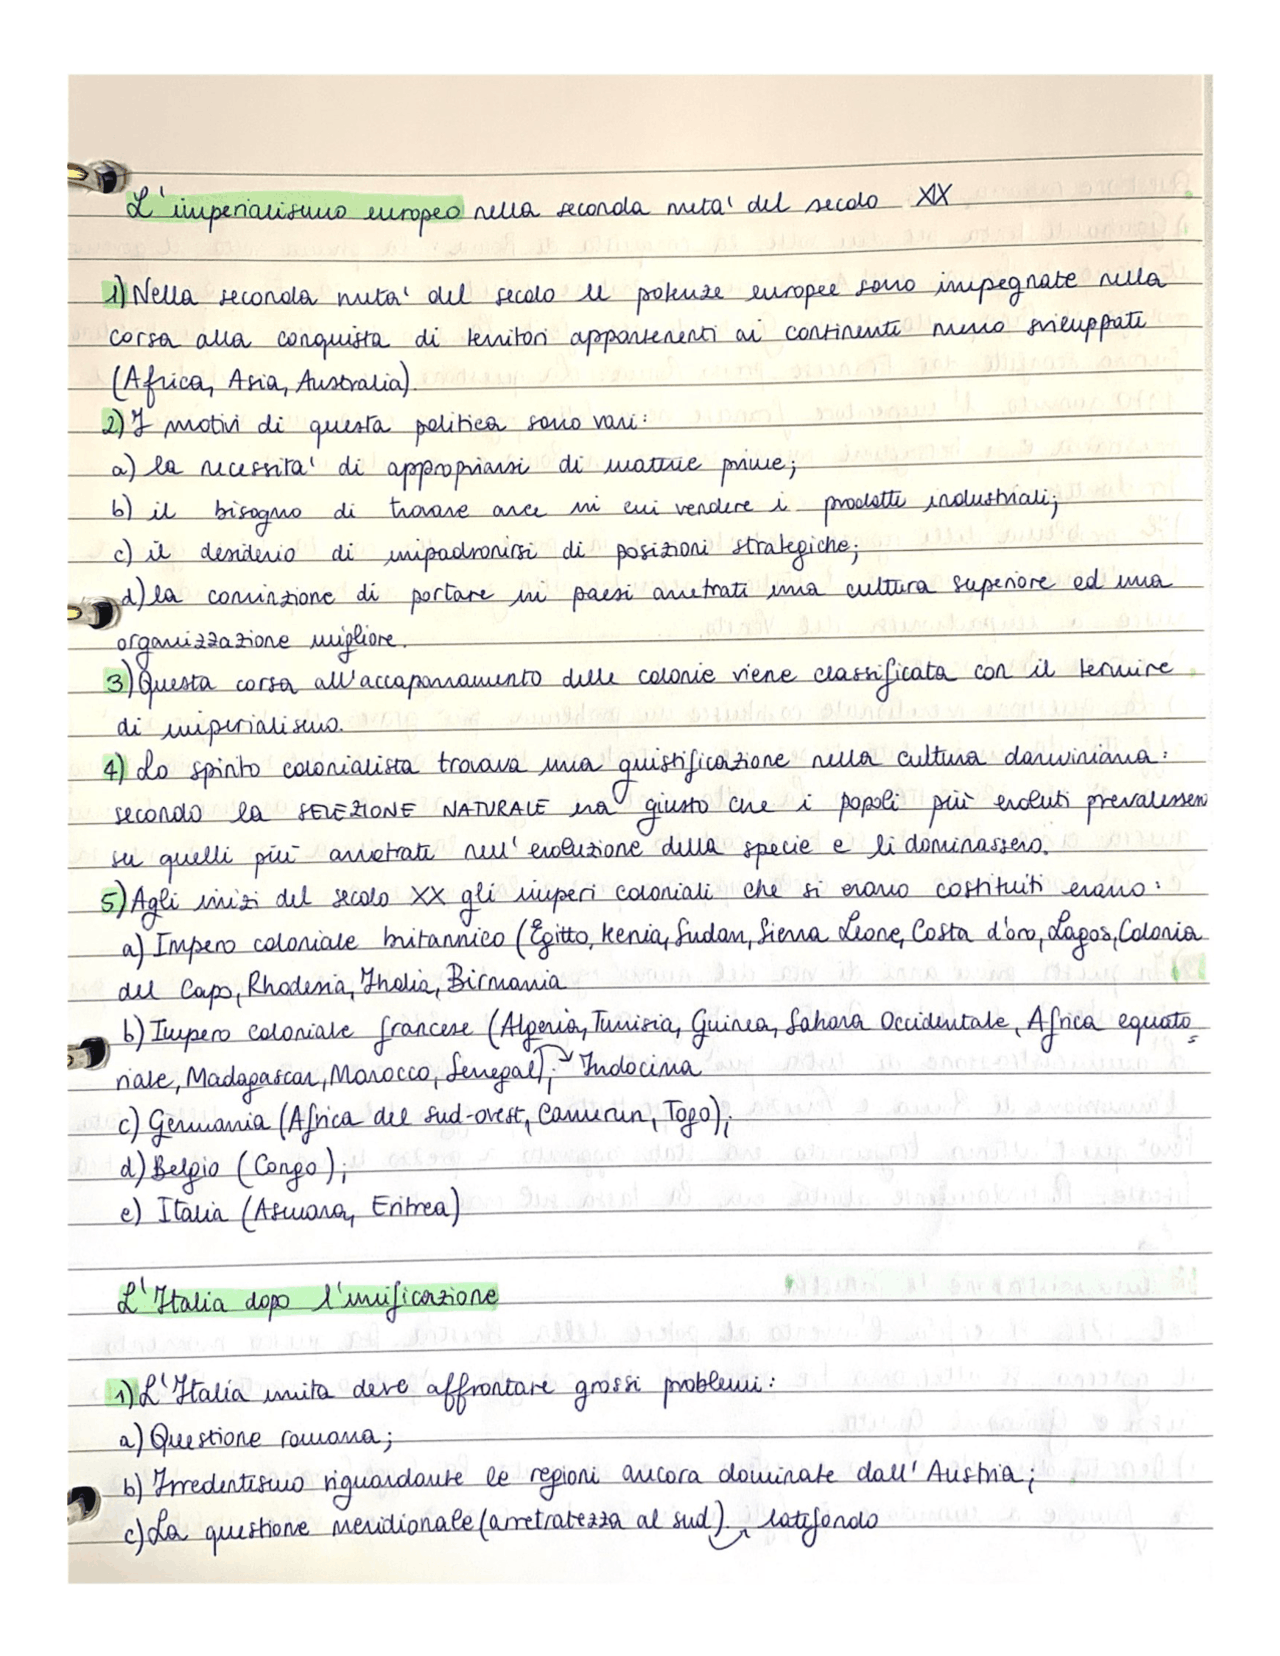 L'imperialismo europeo nella seconda metà del secolo XIX
1) Nella seconda metà del secolo le potenze europee sono impegnate nella
corsa alla conquista di territori appartenenti ai continenti meno sviluppati
(Africa, Asia, Australia).
2) I motivi di questa politica sono vari:
a) la necessità di appropriarsi di materie prime;
b) il bisogno di trovare aree in cui vendere i prodotti industriali;
c) il desiderio di impadronirsi di posizioni strategiche;
d) la convinzione di portare in paesi arretrati una cultura superiore ed una
organizzazione migliore.
3) Questa corsa all'accaparramento delle colonie viene classificata con il termine
di imperialismo.
4) Lo spirito colonialista trovava una giustificazione nella cultura darwiniana:
secondo la SELEZIONE NATURALE era giusto che i popoli più evoluti prevalessero
su quelli più arretrati nell'evoluzione della specie e li dominassero.
5) Agli inizi del secolo XX gli imperi coloniali che si erano costituiti erano:
a) Impero coloniale britannico (Egitto, Kenia, Sudan, Sierra Leone, Costa d'oro, Lagos, Colonia
del Capo, Rhodesia, Birmania
b) Impero coloniale francese (Algeria, Tunisia, Guinea, Sahara Occidentale, Africa equato=
riale, Madagascar, Marocco, Senegal); Indocina
c) Germania (Africa del sud-ovest, Camerun, Togo);
d) Belgio (Congo);
e) Italia (Asmara, Eritrea)
L'Italia dopo l'unificazione
1) L'Italia unita deve affrontare grossi problemi:
a) Questione romana;
b) Irredentismo riguardante le regioni ancora dominate dall'Austria;
c) La questione meridionale (arretratezza al sud). latifondo